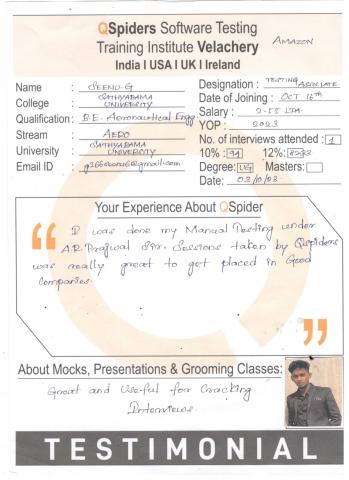 QSpiders Software Testing
Training Institute Velachery
AMAZON
India I USA I UK I Ireland
Name : SEENU.G
College : SATHYABAMA UNIVERSITY
Qualification : B.E. Aeronautical Engg
Stream : AERO
University : SATHYABAMA UNIVERSITY
Email ID :
Designation : TESTING ASSOCIATE
Date of Joining : OCT 16th
Salary : 2.55 LTA
YOP : 2023
No. of interviews attended : 1
10% : 12% :
Degree: UG Masters:
Date: 03/10/03
Your Experience About QSpider
I was done my Manual Testing under
A.R. Prajwal Sir. Sessions taken by Qspiders
was really great to get placed in Good
Companies.
About Mocks, Presentations & Grooming Classes:
Great and Useful for Cracking
Interviews
TESTIMONIAL